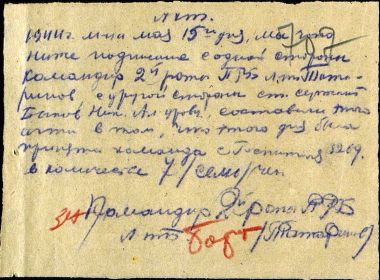 Акт.
787
1944 г. м-ца мая 15го дня, мы
ниже подписи с одной стороны
командир 2й роты ПРБ Л-т Тата-
ринов с другой стороны ст. сержант
составили
акт в том, что того дня была
принята команда с Госпиталя 3269
в количестве 7/семь/чел
Командир 2й роты ПРБ
Л-т /Татаринов/